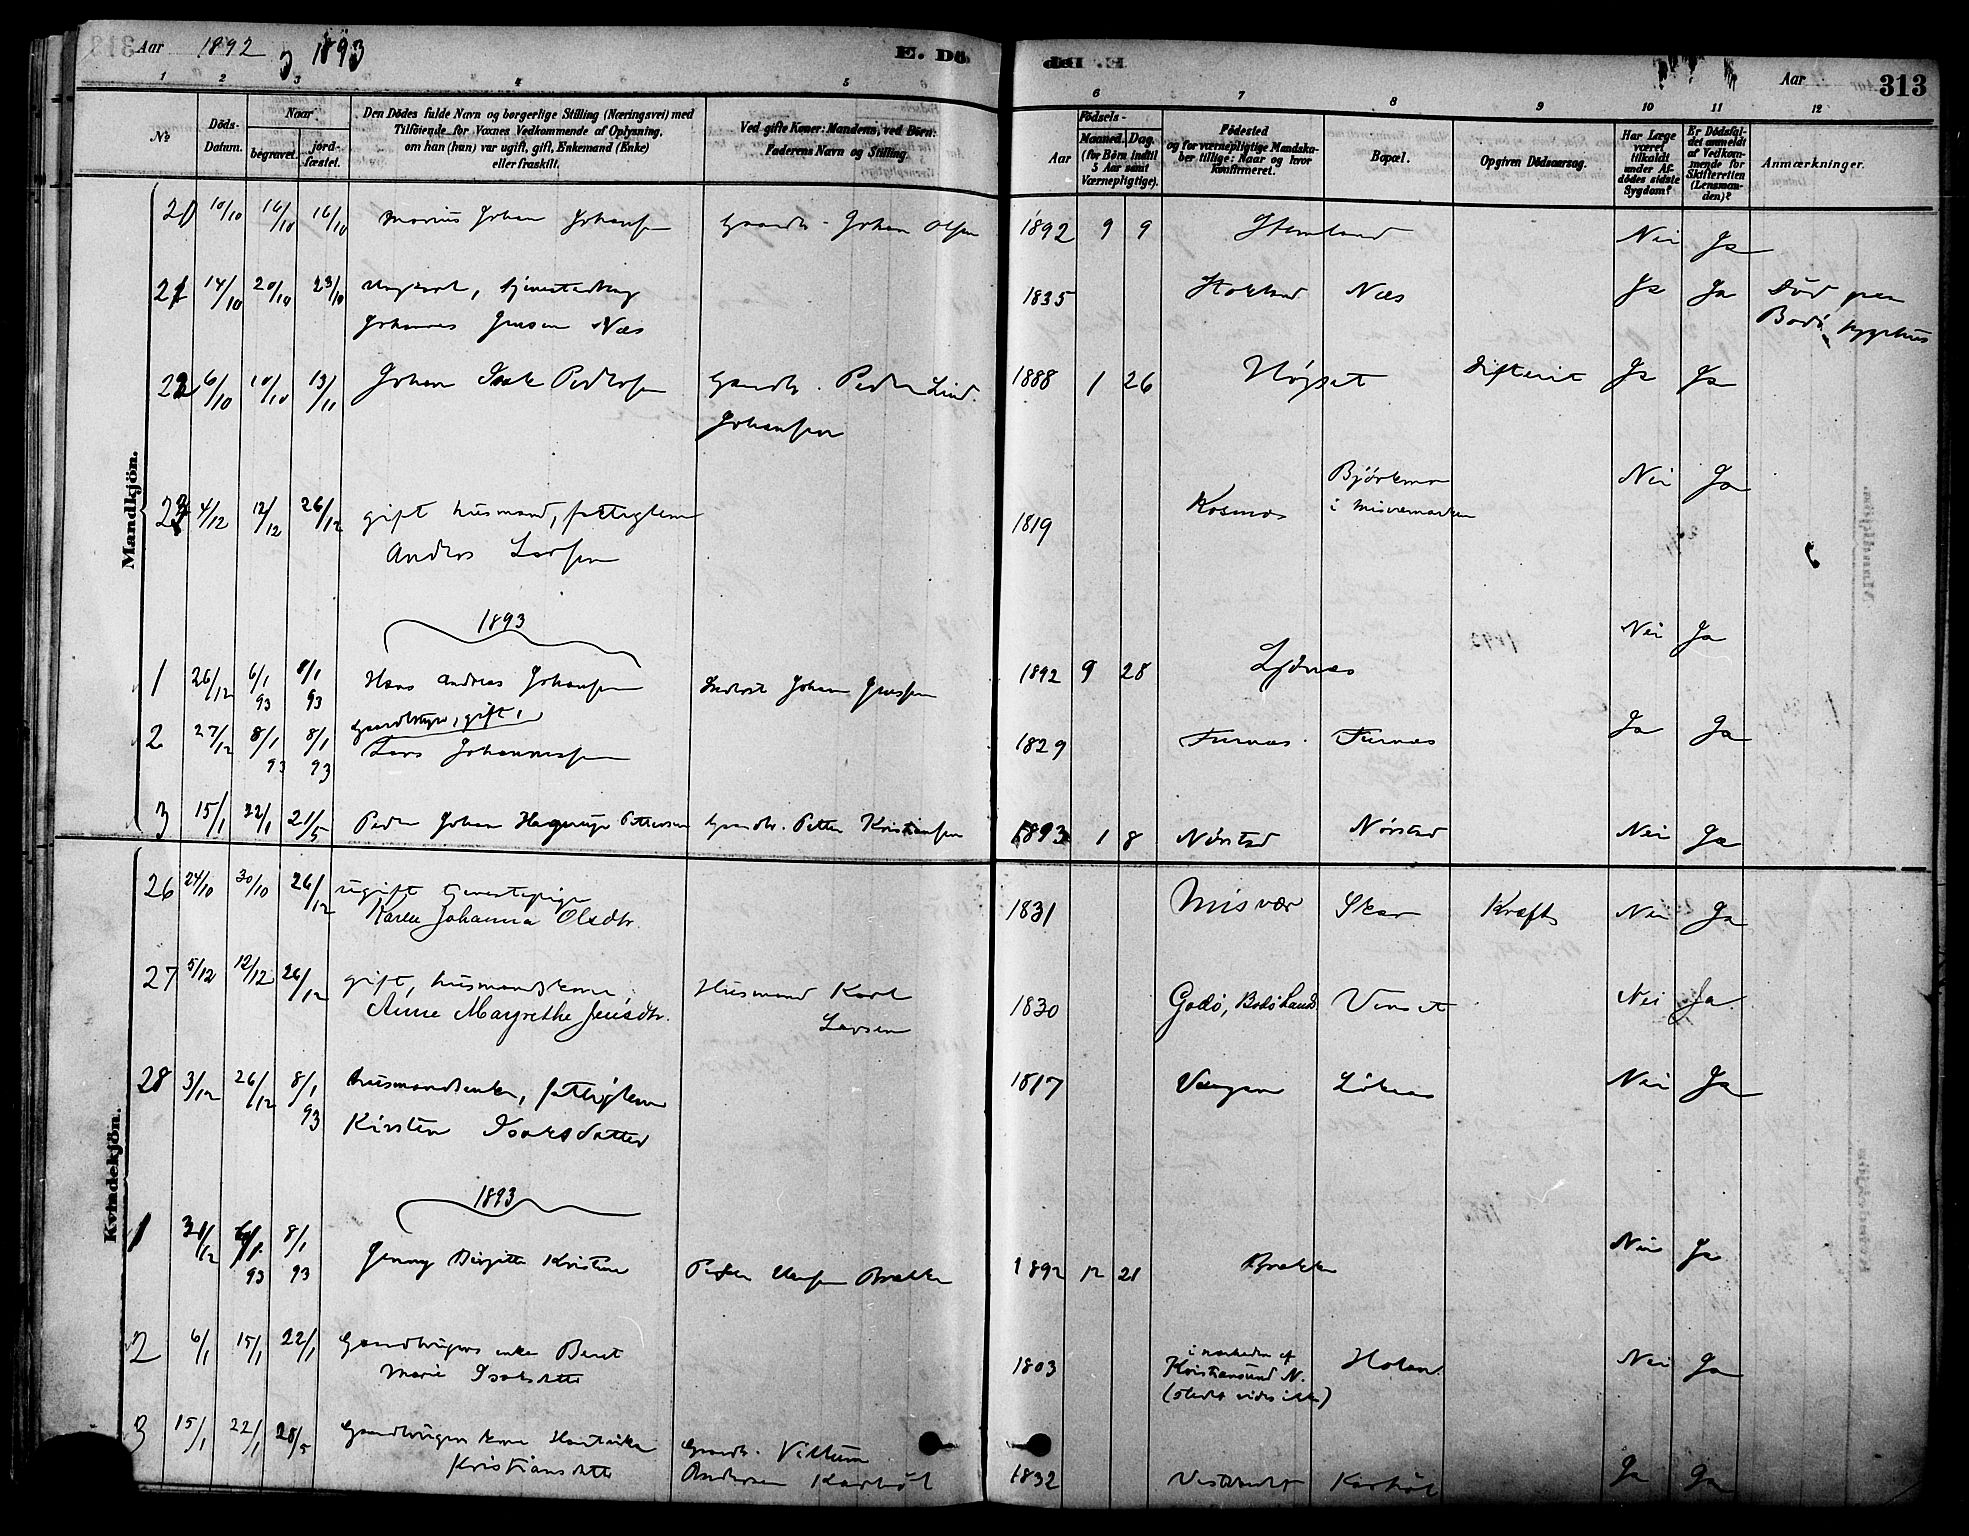 Aar 1892 1893 E. Dö
Aar 313
1 2 3 4 5 6 7 8 9 10 11 12
No Döds-Datum. Naar begravet. jord-fæstet. Den Dödes fulde Navn og borgerlige Stilling (Næringsvei) med Tilföiende for Voxnes Vedkommende af Oplysning, om han (hun) var ugift, gift, Enkemand (Enke) eller fraskilt. Ved gifte Koner: Mandens, ved Börn: Faderens Navn og Stilling.
Födsels- Aar Maaned. Dag. (for Börn indtil 5 Aar samt Værnepligtige). Födested og for værnepligtige Mandskaber tillige: Naar og hvor konfirmeret. Bopæl. Opgiven Dödsaarsag. Har Læge været tilkaldt under Afdödes sidste Sygdom? Er Dödsfaldet anmeldt af Vedkommende for Skifteretten (Lensmanden)? Anmærkninger.
Mandkjön.
10/10 16/10 16/10 Marius Johan Johansen Gaardb. Johan Olsen 1892 9 9 Nei Ja
21 14/10 20/10 23/10 1835 Næs Ja Ja Död paa
Johannes Jensen Næs Bodö sygehus
22 6/10 10/10 13/11 Johan Isak Pedersen Gaardb. Peder Lind. 1888 1 26 Høgset Difterit Ja Ja
Johansen
23 4/12 12/12 26/12 gift husmand, fattiglem 1819 Kosmos Nei Ja
i Misværmarken
Anders Larsen
1893
1 26/12 6/1 93 8/1 93 Hans Andreas Johansen Johan Jensen 1892 9 28 Nei Ja
2 27/12 8/1 93 8/1 93 gift, 1829 Furnæs Furnæs Ja Ja
Lars Johannessen
3 15/1 22/1 21/5 Peder Johan Hagerup Pettersen Gaardb. Petter Kristiansen 1893 1 8 Nörstad Nörstad Nei Ja
Kvindekjön.
26 24/10 30/10 26/12 ugift tjenestepige 1831 Misvær Skar Kræft Nei Ja
Karen Johanna Olsdtr.
27 5/12 12/12 26/12 gift, husmandskone, Husmand Karl 1830 Godö, Bodö Land. Venset Nei Ja.
Anne Margrethe Jensdtr. Larsen
28 3/12 26/12 8/1 93 husmandsenke, fattiglem 1817 Vaagan Nei Ja
Kirsten Isaksdatter
1893
1 31/12 6/1 93 8/1 93 Jenny Birgitte Kristine Peder Hansen Brække 1892 12 21 Brække Nei Ja
2 6/1 15/1 22/1 Gaardbrugers enke Beret 1803 i nærheden af Kristiansund N. (stedet vides ikke) Nei Ja
Marie Isaksdtr
3 15/1 22/1 28/5 Gaardbrugers kone Gaardb. Villum 1832 Karbøl Ja Ja
Kristiansdtr Andersen Karbøl